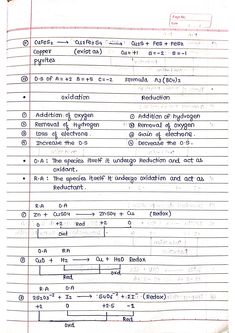 Page No.
Date
CuFeS2 → Cu2Fe2S4 CuS + FeS + FeS2
Copper (exist as) Cu=+1 A=-2 B=-1
pyrites
O.S of A=+2 B=+5 C=-2 Formula A3(BC4)2
• Oxidation Reduction
Addition of oxygen Addition of hydrogen
Removal of hydrogen Removal of oxygen
Loss of electrons. Gain of electrons.
Increase the O.S Decrease the O.S.
• O.A : The species itself it undergo Reduction and act as
oxidant.
• R.A : The species itself it undergo oxidation and act as
Reductant.
R.A O.A
Zn + CuSO4 → ZnSO4 + Cu (Redox)
0 Red +2 0
Oxd
O.A R.A
CuO + H2 → Cu + H2O Redox
oxd
Red
R.A O.A
2S2O3-2 + I2 → S4O6-2 + 2I- (Redox)
+2 0 +2.5 -1
Oxd
Red